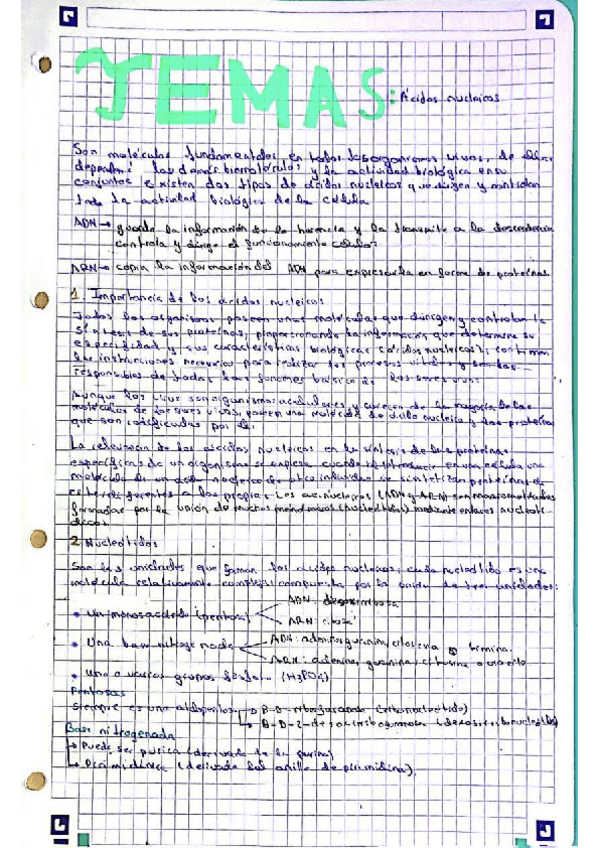 TEMA 5: Ácidos nucleicos
Son moléculas fundamentales en todos los organismos vivos, de ellas
dependen las demás biomoléculas y la actividad biológica en su
conjunto existen dos tipos de ácidos nucleicos que dirigen y controlan
toda la actividad biológica de la célula
ADN → guarda la información de la herencia y la transmite a la descendencia
controla y dirige el funcionamiento celular
ARN → copia la información del ADN para expresarla en forma de proteínas
1. Importancia de los ácidos nucleicos
Todos los organismos poseen unas moléculas que dirigen y controlan la
síntesis de sus proteínas, proporcionando la información que determina su
especificidad y sus características biológicas (ácidos nucleicos); contienen
las instrucciones necesarias para realizar los procesos vitales y son las
responsables de todas las funciones básicas de los seres vivos
Aunque los virus son organismos acelulares y carecen de la mayoría de las
moléculas de los seres vivos, poseen una molécula de ácido nucleico y las proteínas
que son codificadas por él.
La relevancia de los ácidos nucleicos en la síntesis de las proteínas
específicas de un organismo se explica cuando al introducir en una célula una
molécula de un ácido nucleico de otro individuo se sintetizan proteínas de
este diferentes a las propias. Los ac. nucleicos (ADN y ARN) son macromoléculas
formadas por la unión de muchos monómeros (nucleótidos) mediante enlaces nucleotí-
dicos.
2 Nucleótidos
Son las unidades que forman los ácidos nucleicos, cada nucleótido es una
molécula relativamente compleja compuesta por la unión de tres unidades:
• Un monosacárido (pentosa) ADN: desoxirribosa
ARN: ribosa
• Una base nitrogenada ADN: adenina, guanina, citosina o timina.
ARN: adenina, guanina, citosina o uracilo
• Uno o varios grupos fosfato (H3PO4)
Pentosas
siempre es una aldopentosa → β-D-ribofuranosa (ribonucleótido)
→ β-D-2-desoxirribofuranosa (desoxirribonucleótido)
Base nitrogenada
→ Puede ser púrica (derivada de la purina)
→ Pirimidínica (derivada del anillo de pirimidina).